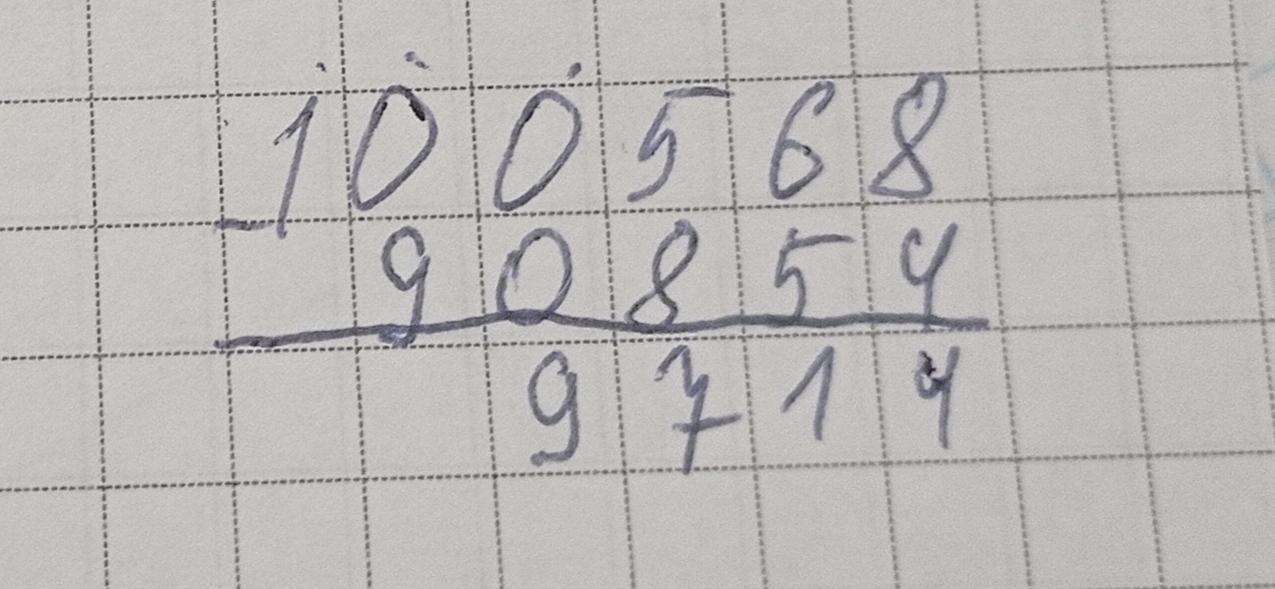 100568
- 90854
9714